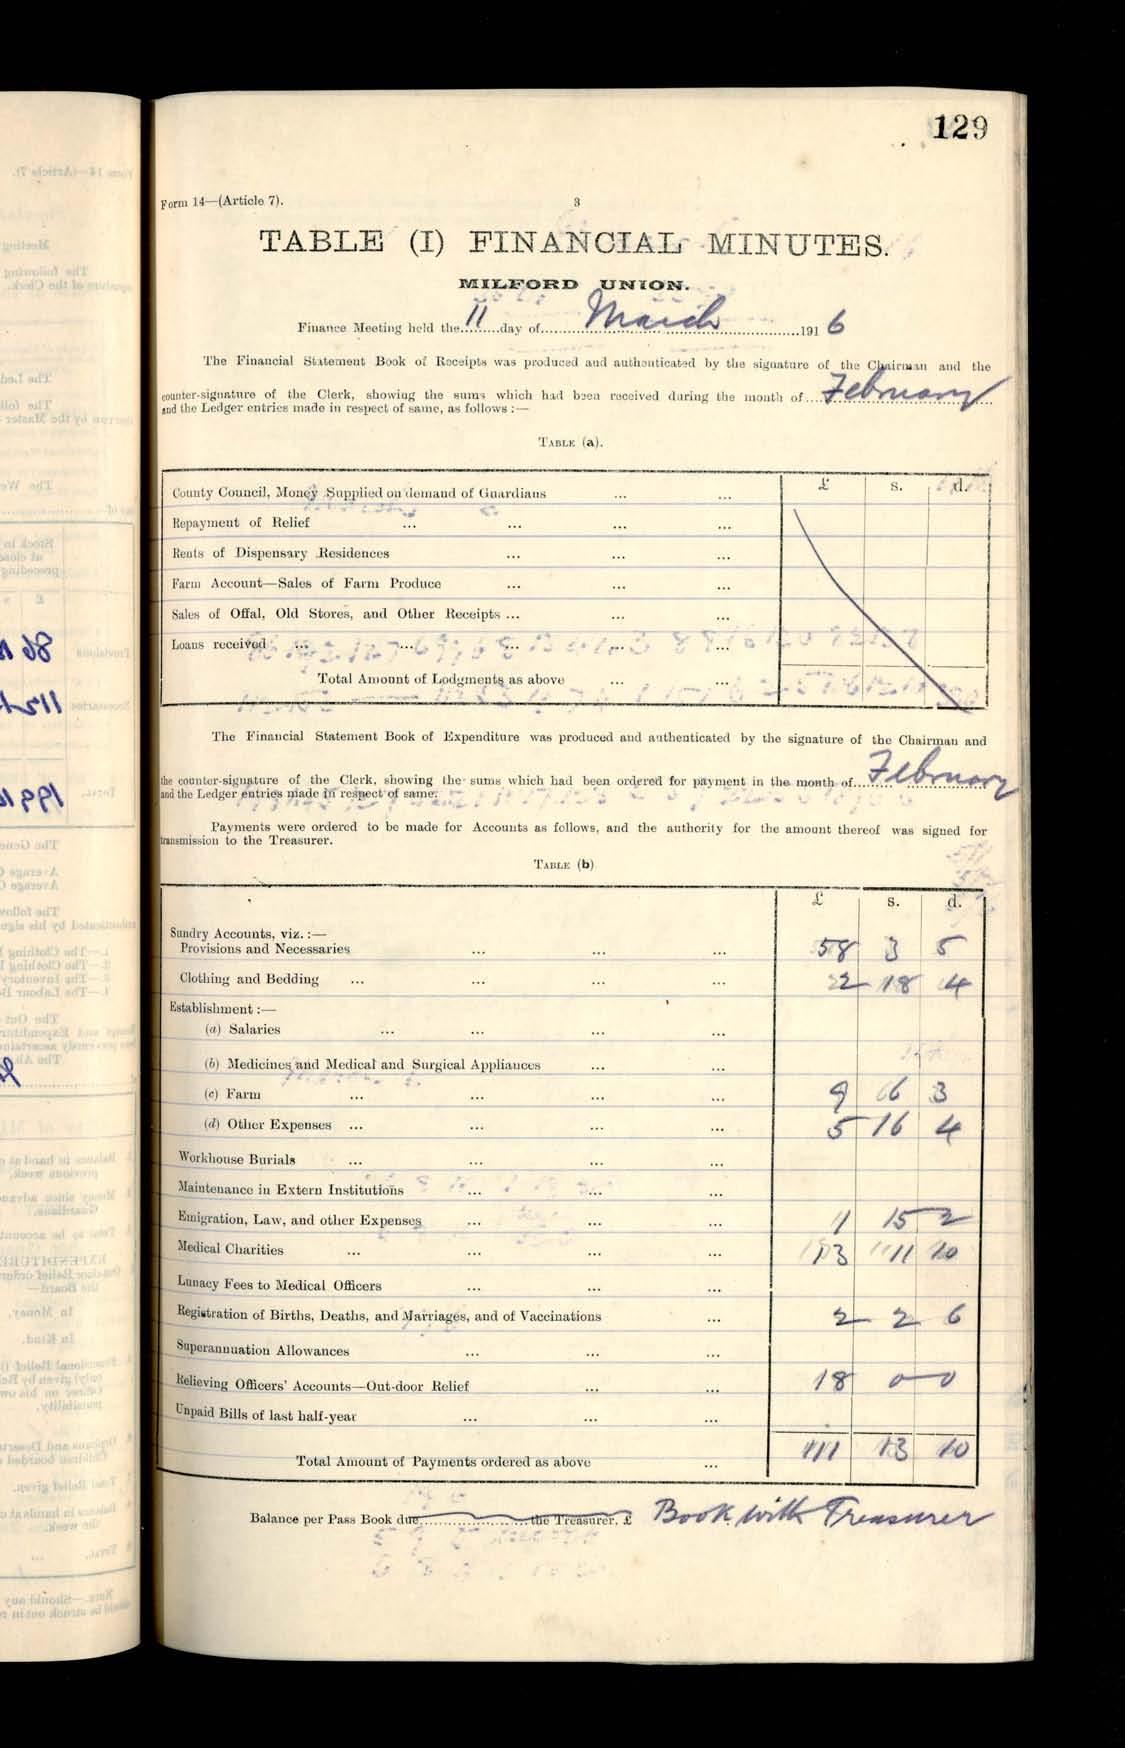 129
Form 14—(Article 7).
3
TABLE (I) FINANCIAL MINUTES.
MILFORD UNION.
Finance Meeting held the 11 day of March 1916
The Financial Statement Book of Receipts was produced and authenticated by the signature of the Chairman and the
counter-signature of the Clerk, showing the sums which had been received during the month of February
and the Ledger entries made in respect of same, as follows :—
TABLE (a).
£ s. d.
County Council, Money Supplied on demand of Guardians ... ...
Repayment of Relief ... ... ... ...
Rents of Dispensary Residences ... ... ...
Farm Account—Sales of Farm Produce ... ... ...
Sales of Offal, Old Stores, and Other Receipts ... ... ...
Loans received ... ... ... ... ...
Total Amount of Lodgments as above ... ...
The Financial Statement Book of Expenditure was produced and authenticated by the signature of the Chairman and
the counter-signature of the Clerk, showing the sums which had been ordered for payment in the month of February
and the Ledger entries made in respect of same.
Payments were ordered to be made for Accounts as follows, and the authority for the amount thereof was signed for
transmission to the Treasurer.
TABLE (b)
£ s. d.
Sundry Accounts, viz. :—
Provisions and Necessaries ... ... ... 58 3 5
Clothing and Bedding ... ... ... ... 2 18 4
Establishment :—
(a) Salaries ... ... ... ...
(b) Medicines and Medical and Surgical Appliances ... ...
(c) Farm ... ... ... ... 9 6 3
(d) Other Expenses ... ... ... ... 5 16 4
Workhouse Burials ... ... ... ...
Maintenance in Extern Institutions ... ... ...
Emigration, Law, and other Expenses ... ... ... 1 15 2
Medical Charities ... ... ... ... 13 11 10
Lunacy Fees to Medical Officers ... ... ...
Registration of Births, Deaths, and Marriages, and of Vaccinations ... 2 2 6
Superannuation Allowances ... ... ...
Relieving Officers' Accounts—Out-door Relief ... ... 18 0 0
Unpaid Bills of last half-year ... ... ...
Total Amount of Payments ordered as above ... 111 13 10
Balance per Pass Book due the Treasurer, £ Book with Treasurer